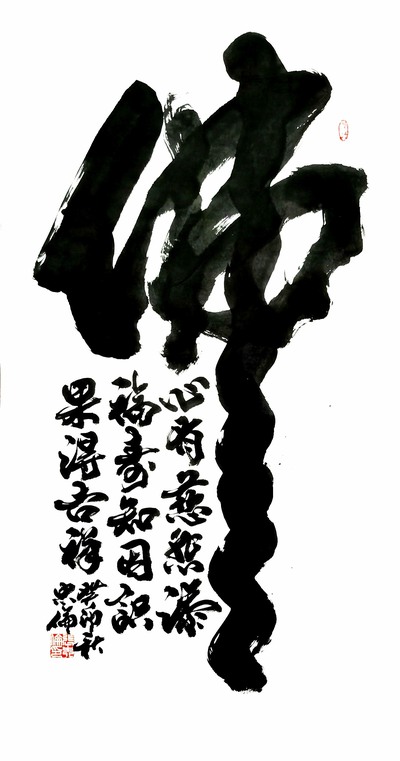 佛
心有慈悲添
福寿知因识
果得吉祥
癸卯秋
忠伦